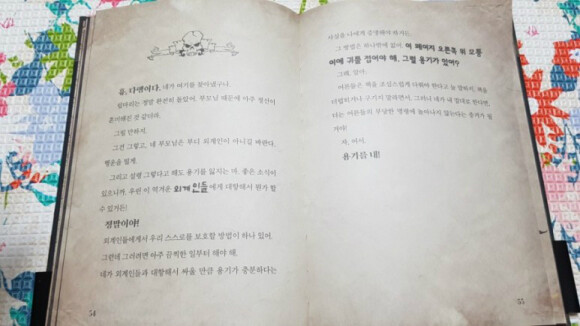 음, 다행이다. 네가 여기를 찾아냈구나.
말이라는
그럴 만하지.
그건 그렇고, 네 부모님은 부디 외계인이 아니길 바란다.
행운을 빌게.
그리고 설령 그렇다고 해도 용기를 잃지는 마. 좋은 소식이
있으니까. 우린 이 역겨운 외계인들에게 대항해서 뭔가 할
수 있거든!
정말이야!
외계인들에게서 우리 스스로를 보호할 방법이 하나 있어.
그런데 그러려면 아주 끔찍한 일부터 해야 해.
네가 외계인들과 대항해서 싸울 만큼 용기가 충분하다는
54
사실을 나에게 증명해야 하거든.
그 방법은 하나밖에 없어. 이 페이지 오른쪽 위 모퉁
이에 귀를 접어야 해. 그럴 용기가 있어?
그래, 알아.
어른들은 책을 조심스럽게 다뤄야 한다고 늘 말하지. 책을
더럽히거나 구기지 말라면서. 그러니 네가 내 말대로 한다면,
너는 어른들의 부당한 명령에 놀아나지 않는다는 증거가 될
거야!
자, 어서.
용기를 내!
55